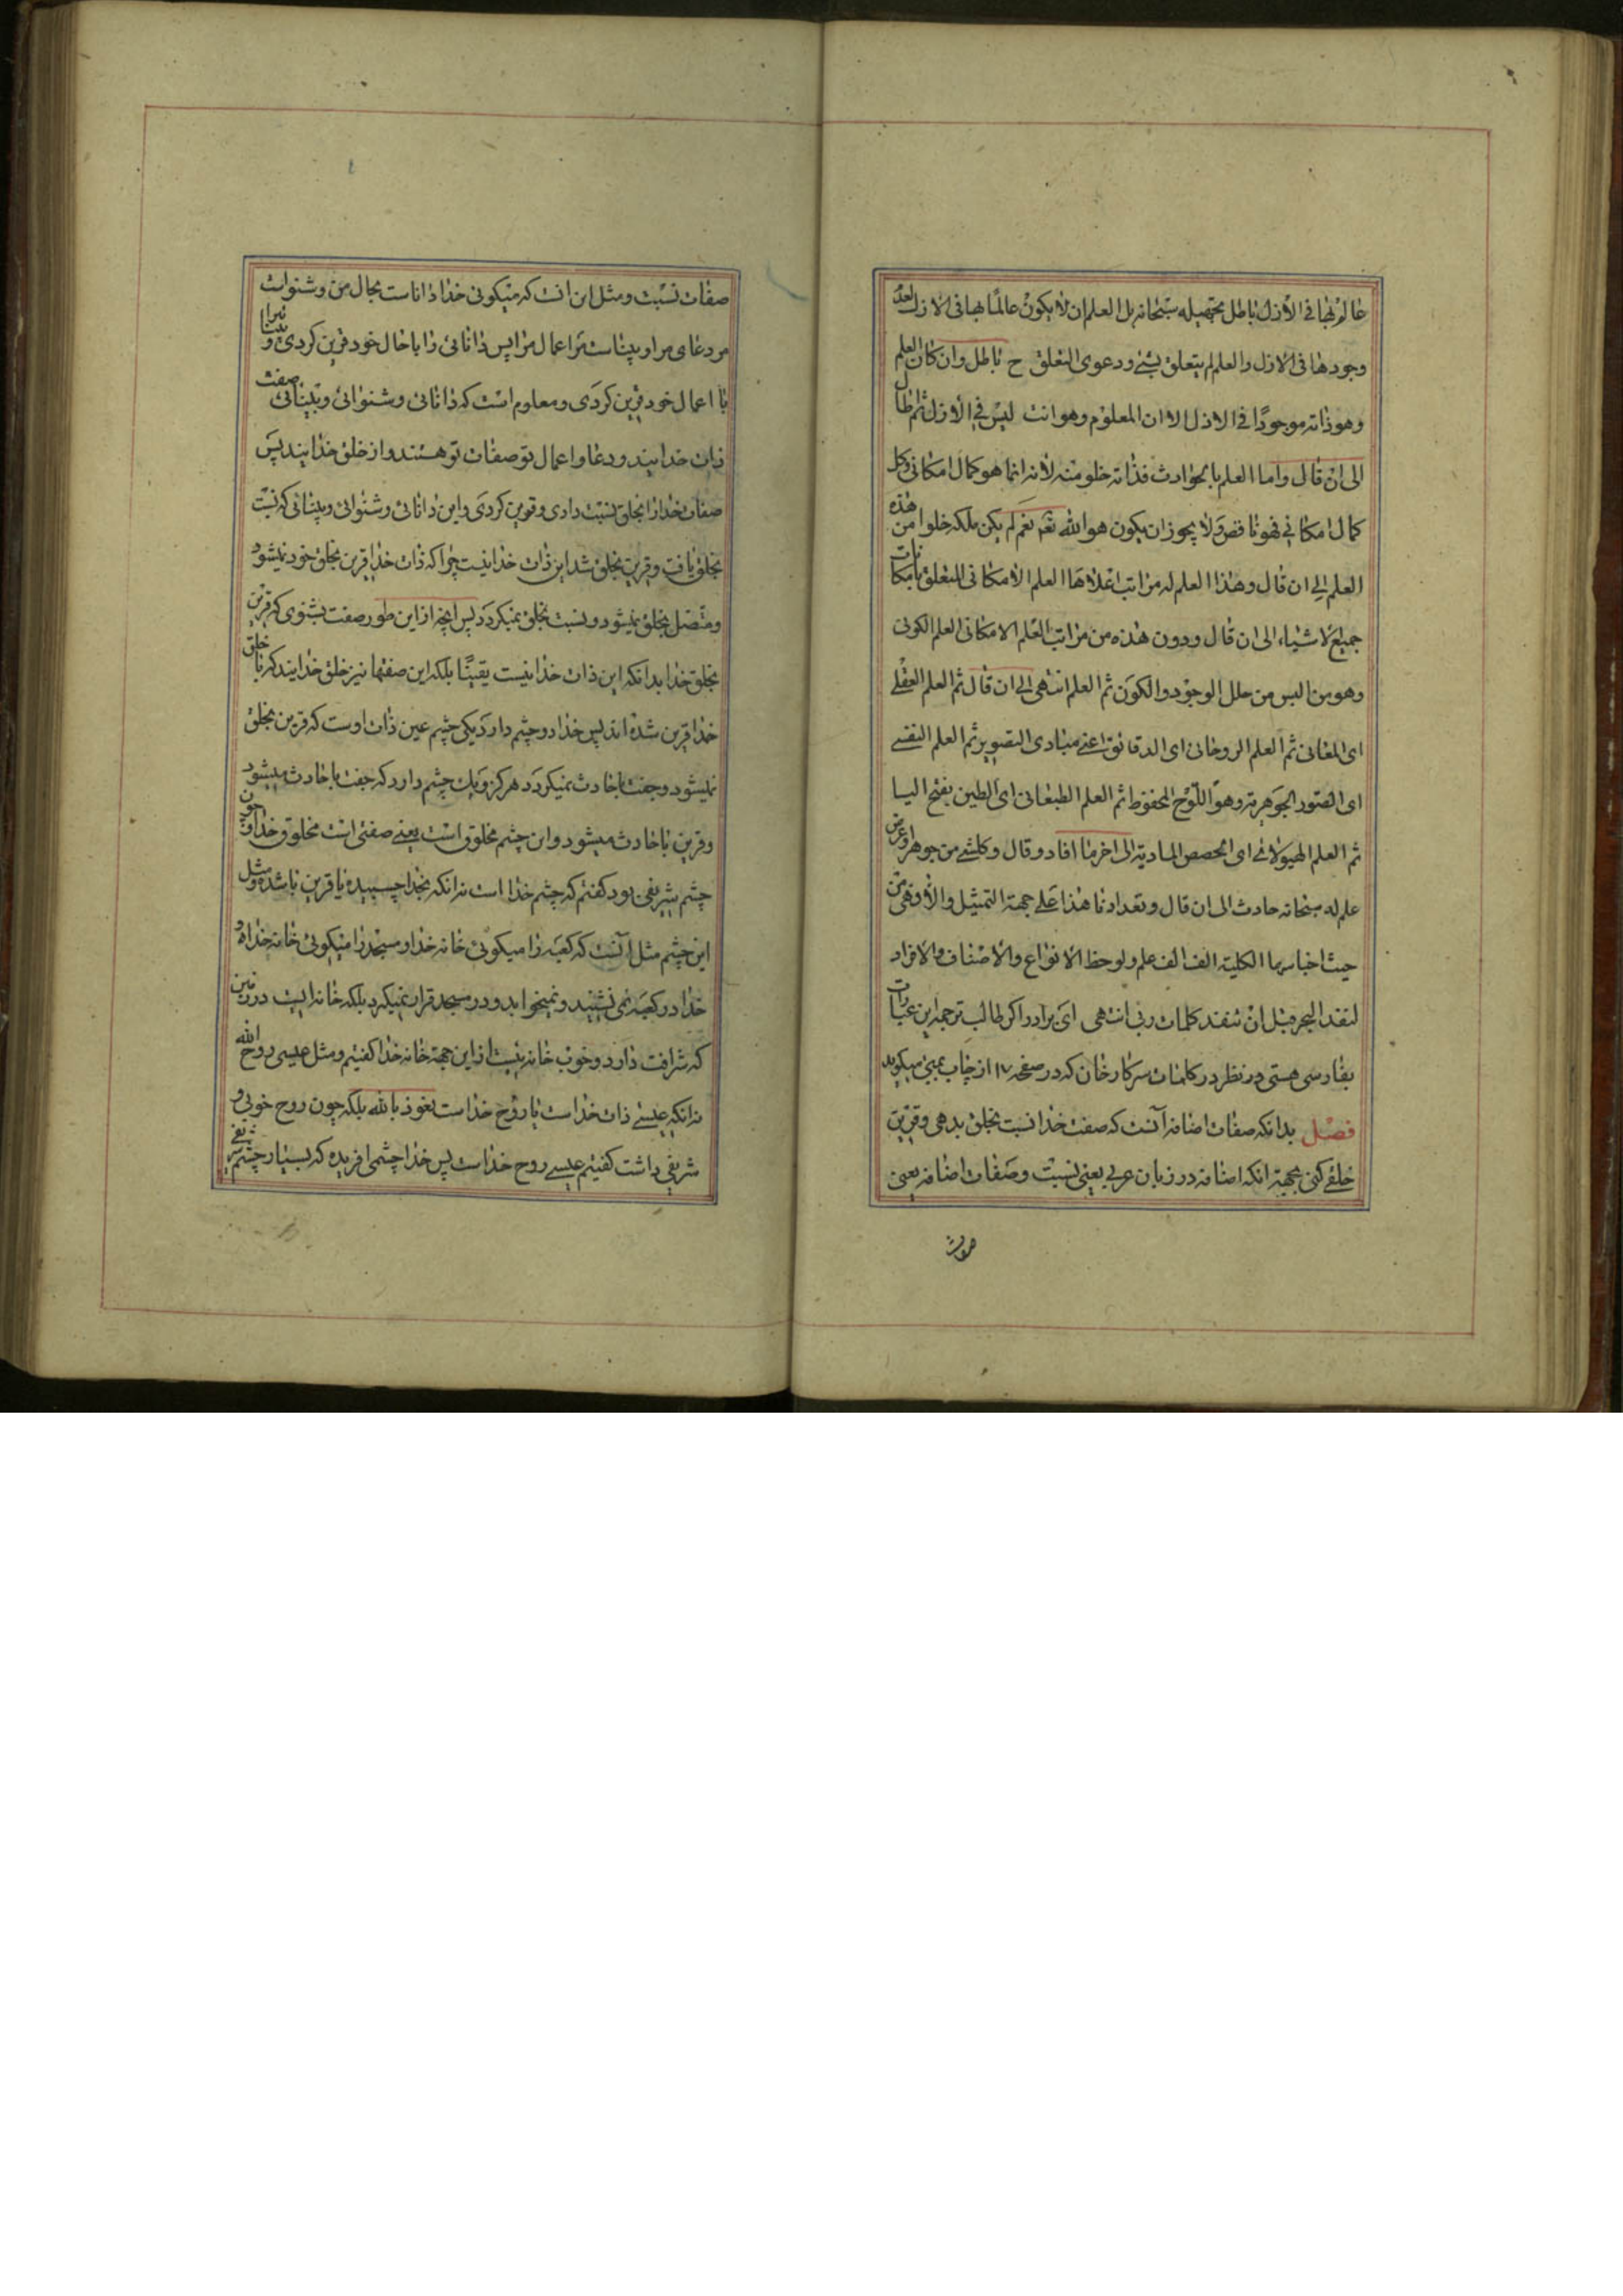 عالم بها فی الأزل باطل بتجهیله سبحانه بل العلم ان لا یکون عالمًا بها فی الازل لعدم
وجودها فی الازل والعلم لم یتعلق بشیء ودعوی التعلق ح باطل وان کان العلم
وهو ذاته موجودًا فی الازل الا ان المعلوم وهو انت لیس فی الأزل ثم اطال
الی ان قال واما العلم بالحوادث فذاته خلو منه لأنه انما هو کمال امکانی وکل
کمال امکانی فهو ناقص ولا یجوز ان یکون هو الله نعم نعم لم یکن ملکه خلوا من هذه
العلم الی ان قال وهذا العلم له مراتب اعلاها العلم الامکانی المتعلق بامکانات
جمیع الاشیاء الی ان قال ودون هذه من مراتب العلم الامکانی العلم الکونی
وهو من البس من حلل الوجود والکون ثم العلم انتهی الی ان قال ثم العلم العقلی
ای المعانی ثم العلم الروحانی ای الدقائق اعنی مبادی التصویر ثم العلم النفسی
ای الصّور الجوهریة وهو اللّوح المحفوظ ثم العلم الطبعانی ای الطین بفتح الیا
ثم العلم الهیولانی ای الحصص المادیة الی اخر ما افاد وقال وکلشیء من جوهر او عرض
علم له سبحانه حادث الی ان قال وتعدادنا هذا علی جهة التمثیل والا وهی من
حیث اجناسها الکلیة الف الف علم ولو لحظ الانواع والأصناف والافراد
لنفد البحر قبل ان تنفد کلمات ربی انتهی ای برادر اگر طالب ترجمه این عبارات
بفارسی هستی در نظر در کلمات سرکار خان که در صفحه ۱۷ از چاپ بمبئی میگوید
فصل بدانکه صفات اضافه آنست که صفت خدا نسبت بخلق بدهی و قرین
خلقی کنی بجهة انکه اضافه در زبان عربی یعنی نسبت و صفات اضافه یعنی
صفات
صفات نسبت و مثل این انست که میگوئی خدا داناست بحال من و شنواست
مر دعای مرا و بیناست مر اعمال مرا پس دانائی را با حال خود قرین کردی و بینا را
با اعمال خود قرین کردی و معلوم است که دانائی و شنوائی و بینائی صفت
ذات خدایند و دعا و اعمال تو صفات تو هستند و از خلق خدایند پس
صفات خدا را بخلق نسبت دادی و قرین کردی و این دانائی و شنوائی و بینائی که نسبت
بخلق یافت و قرین بخلق شد این ذات خدا نیست چرا که ذات خدا قرین بخلق خود نمیشود
و متصل بخلق نمیشود و نسبت بخلق نمیگردد پس انچه از این طور صفت بشنوی که قرین
بخلق خدا بدانکه این ذات خدا نیست یقینًا بلکه این صفتها نیز خلق خدایند که با خلق
خدا قرین شده اند پس خدا دو چشم دارد یکی چشم عین ذات اوست که قرین بخلق
نمیشود و جفت با حادث نمیگردد هرگز و یک چشم دارد که جفت با حادث میشود
و قرین با حادث میشود و این چشم مخلوق است یعنی صفتی است مخلوق خدا و چون
چشم شریفی بود گفتم که چشم خدا است نه انکه بخدا چسبیده یا قرین باشد و مثل
این چشم مثل آنست که کعبه را میگوئی خانه خدا و مسجد را میگوئی خانه خدا و
خدا در کعبه نمی نشیند و نمیخوابد و در مسجد قرار نمیگیرد بلکه خانه ایست در زمین
که شرافت دارد و خوب خانه ئیست از این جهة خانه خدا گفتیم و مثل عیسی روح الله
نه انکه عیسی ذات خداست یا روح خداست نعوذ بالله بلکه چون روح خوبی و
شریفی داشت گفتیم عیسی روح خداست پس خدا چشمی افریده که بسیار چشم شریفی